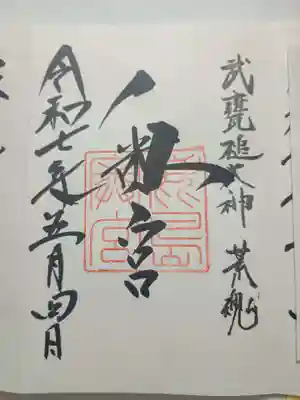 武甕槌大神 荒魂
奥宮
令和七年五月四日